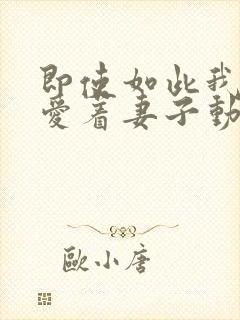 即使如此我
愛着妻子動
歐小唐